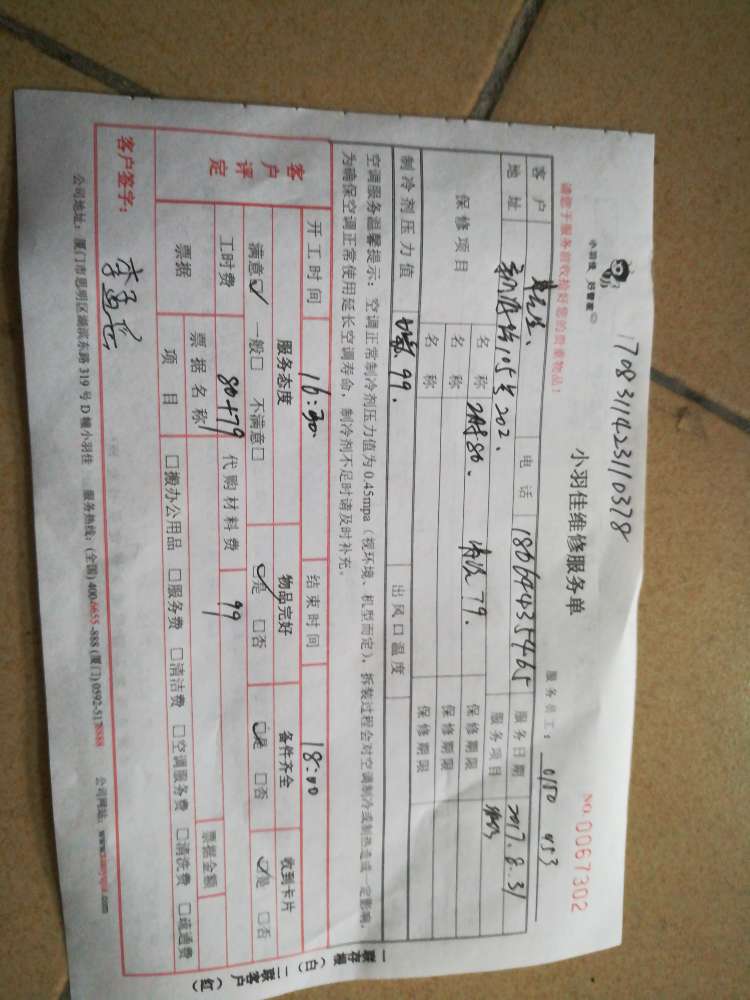 1708311423110378
小羽佳 好管家
小羽佳维修服务单
NO.0067302
请您于服务前收拾好您的贵重物品！
服务员工： 0150 053
客户 电话 18064435465 服务日期 2017.8.31
地址 15号202. 服务项目
保修项目 名称 80. 清洗79. 保修期限
名称 保修期限
名称 保修期限
制冷剂压力值 99. 出风口温度
空调服务温馨提示：空调正常制冷剂压力值为0.45mpa（视环境、机型而定），拆装过程会对空调制冷或制热造成一定影响，
为确保空调正常使用延长空调寿命，制冷剂不足时请及时补充。
开工时间 16:30 结束时间 18:00
客户评定 服务态度 物品完好 备件齐全 收到卡片
满意☑ 一般□ 不满意□ ☑是 □否 ☑是 □否 ☑是 □否
工时费 80+79 代购材料费 99
票据 票据名称 票据金额
项目 □搬办公用品 □服务费 □清洁费 □空调服务费 □清洗费 □疏通费
客户签字：
公司地址：厦门市思明区湖滨东路319号D幢小羽佳 服务热线：(全国)400-6655-888 (厦门)0592-5178888 公司网站：
一联存根（白） 二联客户（红）